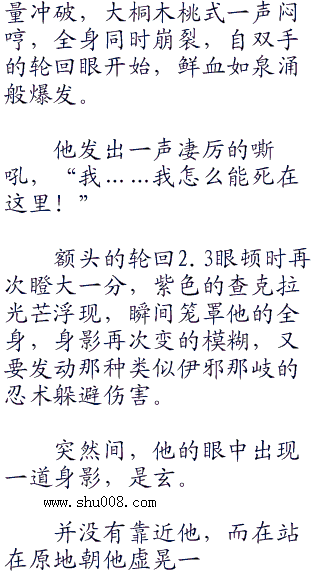 量冲破，大桐木桃式一声闷
哼，全身同时崩裂，自双手
的轮回眼开始，鲜血如泉涌
般爆发。
他发出一声凄厉的嘶
吼，“我……我怎么能死在
这里！”
额头的轮回2.3眼顿时再
次瞪大一分，紫色的查克拉
光芒浮现，瞬间笼罩他的全
身，身影再次变的模糊，又
要发动那种类似伊邪那岐的
忍术躲避伤害。
突然间，他的眼中出现
一道身影，是玄。
www.shu008.com
并没有靠近他，而在站
在原地朝他虚晃一